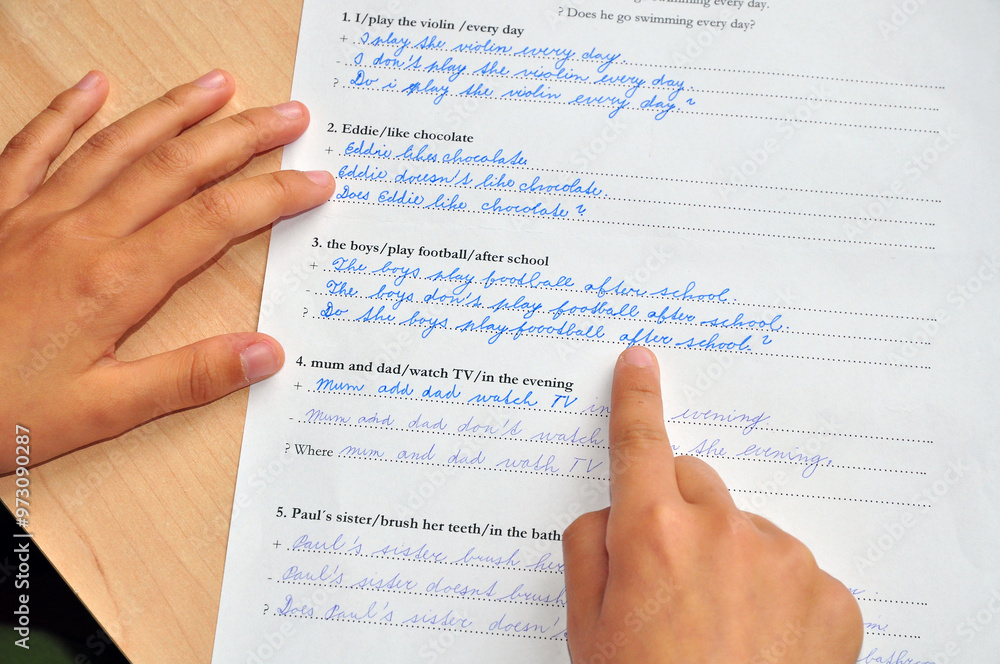 swimming every day.
? Does he go swimming every day?
1. I/play the violin /every day
+ I play the violin every day.
- I don't play the violin every day.
? Do i play the violin every day?
2. Eddie/like chocolate
+ Eddie likes chocolate.
Eddie doesn't like chocolate.
? Does Eddie like chocolate?
3. the boys/play football/after school
+ The boys play football after school.
- The boys don't play football after school.
? Do the boys play foootball after school?
4. mum and dad/watch TV/in the evening
+ Mum add dad watch TV in evening.
- Mum and dad don't watch the evening.
? Where mum and dad wath TV
5. Paul´s sister/brush her teeth/in the bath
+ Paul's sister brush her
- Paul's sister doesnt brush
? Does Paul's sister doesn'
bathroom
Adobe Stock | #973090287
Adobe Stock